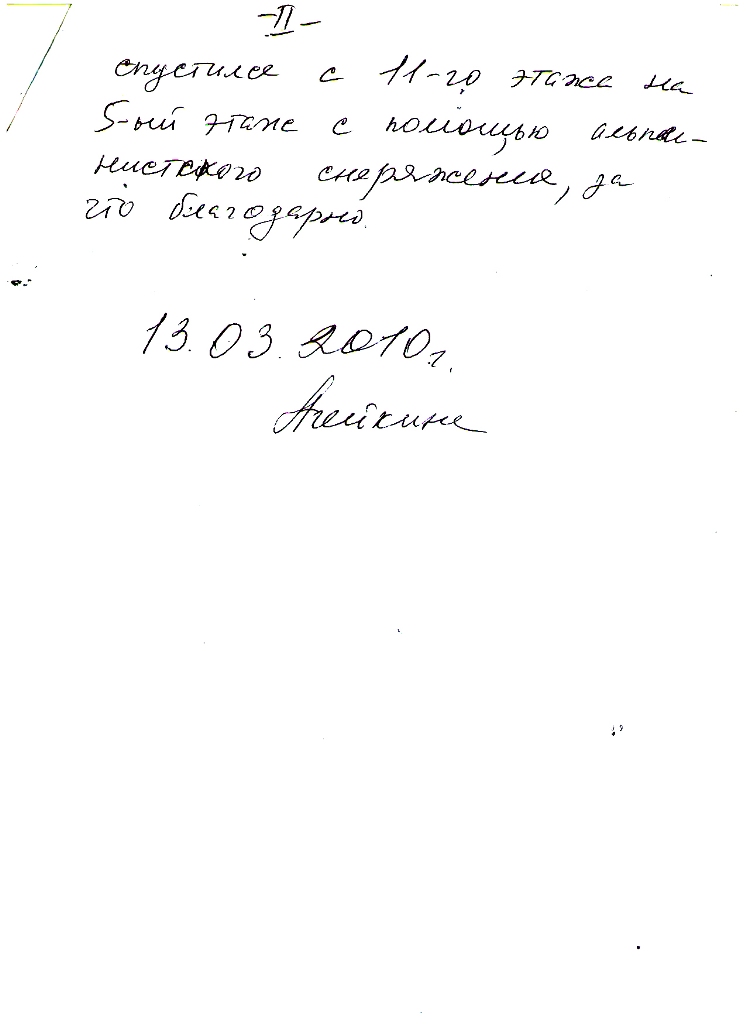 -II-
спустился с 11-го этажа на
5-ый этаж с помощью альпи-
нистского снаряжения, за
что благодарно.
13.03.2010г.
Агейкина